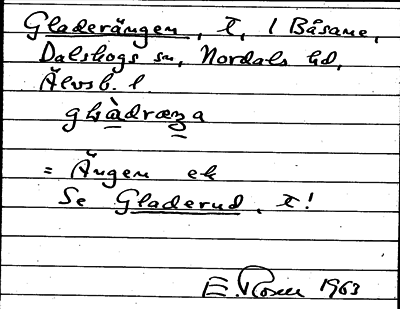 Gladerängen, t, l Båsane,
Dalskogs sn, Nordals hd,
Älvsb. l.
= Ängen ek
Se Gladerud, t!
E. Rosen 1963